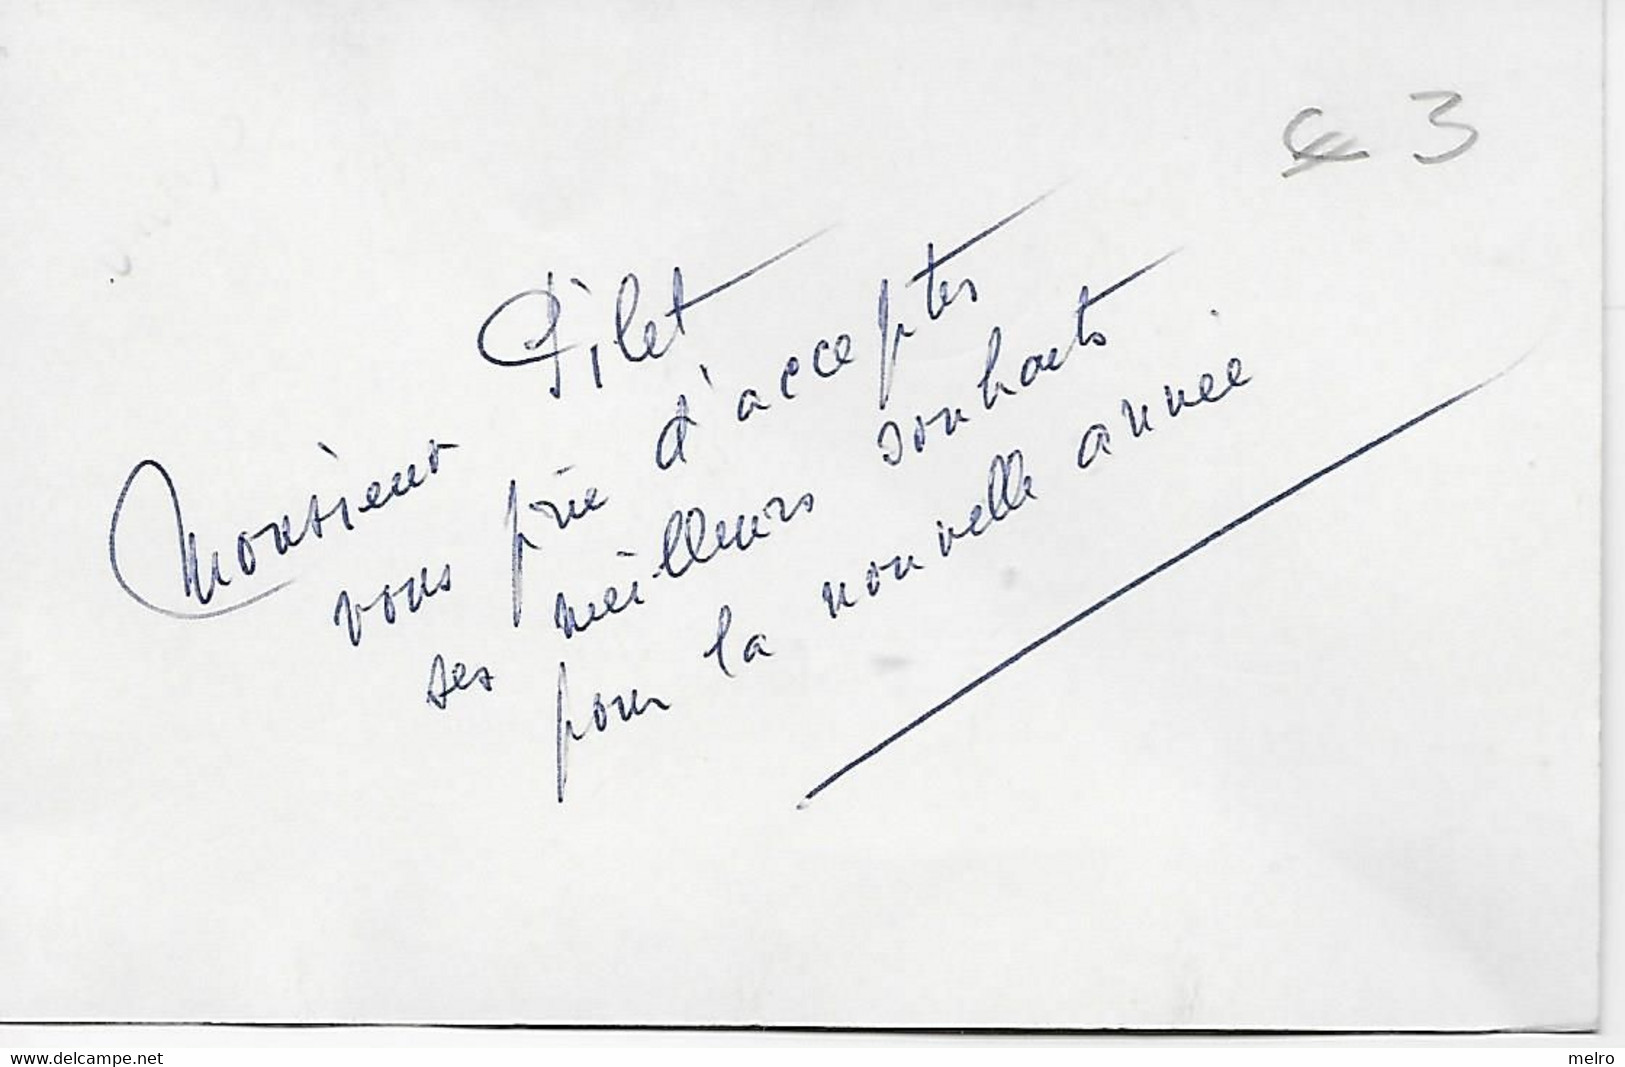 3
Monsieur Pilet
vous prie d'accepter
ses meilleurs souhaits
pour la nouvelle année
www.delcampe.net
melro